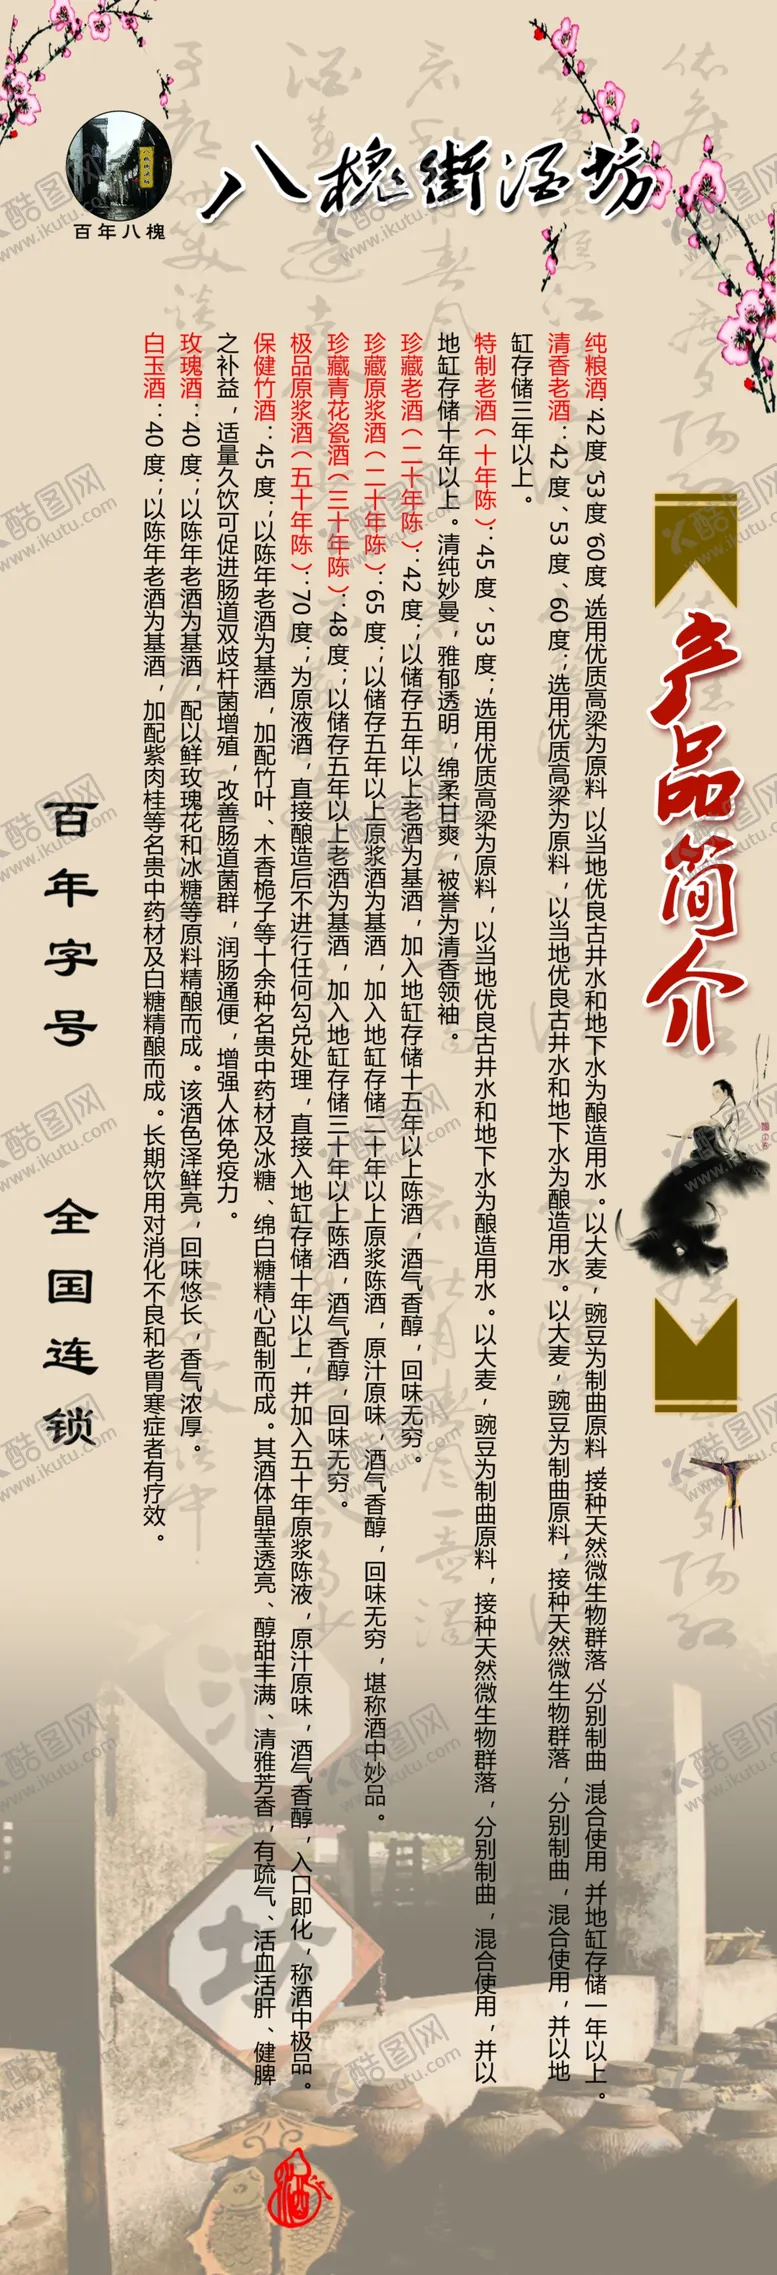 八槐街酒坊
百年八槐
产品简介
纯粮酒：42度 53度 60度，选用优质高粱为原料，以当地优良古井水和地下水为酿造用水。以大麦，豌豆为制曲原料，接种天然微生物群落，分别制曲，混合使用，并地缸存储一年以上。
清香老酒：：42度、53度、60度：，选用优质高粱为原料，以当地优良古井水和地下水为酿造用水。以大麦，豌豆为制曲原料，接种天然微生物群落，分别制曲，混合使用，并以地
缸存储三年以上。
特制老酒（十年陈）：：45度、53度：，选用优质高粱为原料，以当地优良古井水和地下水为酿造用水。以大麦，豌豆为制曲原料，接种天然微生物群落，分别制曲，混合使用，并以
地缸存储十年以上。清纯妙曼，雅郁透明，绵柔甘爽，被誉为清香领袖。
珍藏老酒（二十年陈）：：42度：，以储存五年以上老酒为基酒，加入地缸存储十五年以上陈酒，酒气香醇，回味无穷。
珍藏原浆酒（二十年陈）：：65度：，以储存五年以上原浆酒为基酒，加入地缸存储二十年以上原浆陈酒，原汁原味，酒气香醇，回味无穷，堪称酒中妙品。
珍藏青花瓷酒（三十年陈）：：48度：，以储存五年以上老酒为基酒，加入地缸存储三十年以上陈酒，酒气香醇，回味无穷。
极品原浆酒（五十年陈）：：70度：，为原液酒，直接酿造后不进行任何勾兑处理，直接入地缸存储十年以上，并加入五十年原浆陈液，原汁原味，酒气香醇，入口即化，称酒中极品。
保健竹酒：：45度：，以陈年老酒为基酒，加配竹叶、木香桅子等十余种名贵中药材及冰糖、绵白糖精心配制而成。其酒体晶莹透亮、醇甜丰满、清雅芳香，有疏气、活血活肝、健脾
之补益，适量久饮可促进肠道双歧杆菌增殖，改善肠道菌群，润肠通便，增强人体免疫力。
玫瑰酒：：40度：，以陈年老酒为基酒，配以鲜玫瑰花和冰糖等原料精酿而成。该酒色泽鲜亮，回味悠长，香气浓厚。
白玉酒：：40度：，以陈年老酒为基酒，加配紫肉桂等名贵中药材及白糖精酿而成。长期饮用对消化不良和老胃寒症者有疗效。
百年字号 全国连锁
坊
酒
酷图网
www.ikutu.com